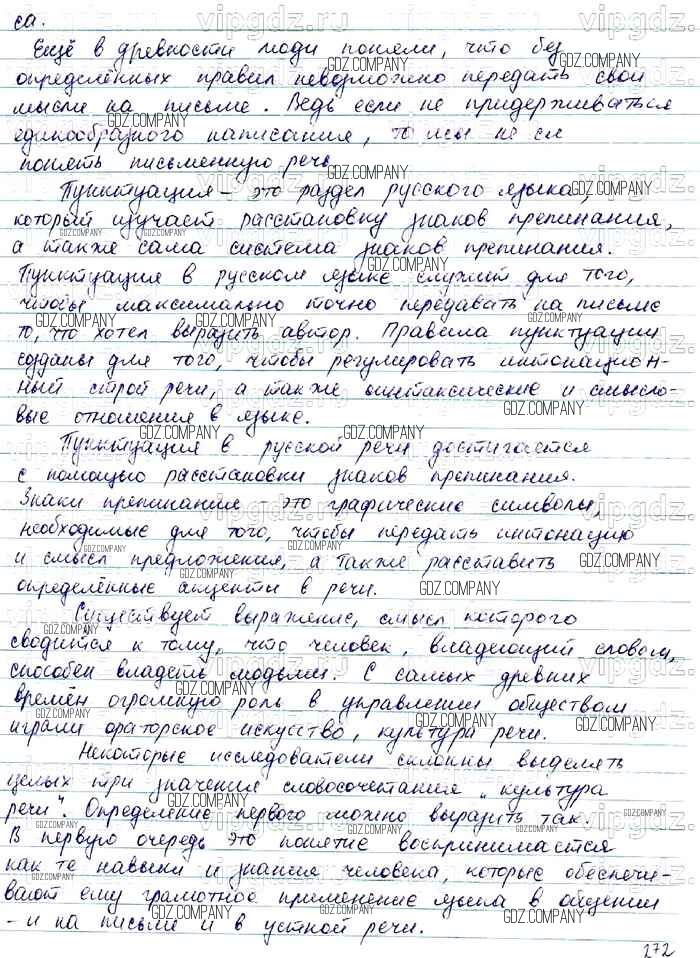 са.
Ещё в древности люди поняли, что без
определённых правил невозможно передать свои
мысли на письме. Ведь если не придерживаться
единообразного написания, то
понять письменную речь
Пунктуация – это раздел русского языка,
который изучает расстановку знаков препинания,
а также сама система знаков препинания.
Пунктуация в русском языке служит для того,
чтобы максимально точно передавать на письме
то, что хотел выразить автор. Правила пунктуации
созданы для того, чтобы регулировать интонацион-
ный строй речи, а также синтаксические и смысло-
вые отношения в языке.
Пунктуация в русской речи достигается
с помощью расстановки знаков препинания.
Знаки препинания – это графические символы,
необходимые для того, чтобы передать интонацию
и смысл предложения, а также расставить
определённые акценты в речи.
Существует выражение, смысл которого
сводится к тому, что человек, владеющий словом,
способен владеть людьми. С самых древних
времён огромную роль в управлении обществом
играли ораторское искусство, культура речи.
Некоторые исследователи склонны выделять
целых три значения словосочетания „культура
речи". Определение первого можно выразить так.
В первую очередь это понятие воспринимается
как те навыки и знания человека, которые обеспечи-
вают ему грамотное применение языка в общении
- и на письме и в устной речи.
272
vipgdz.ru
GDZ.COMPANY